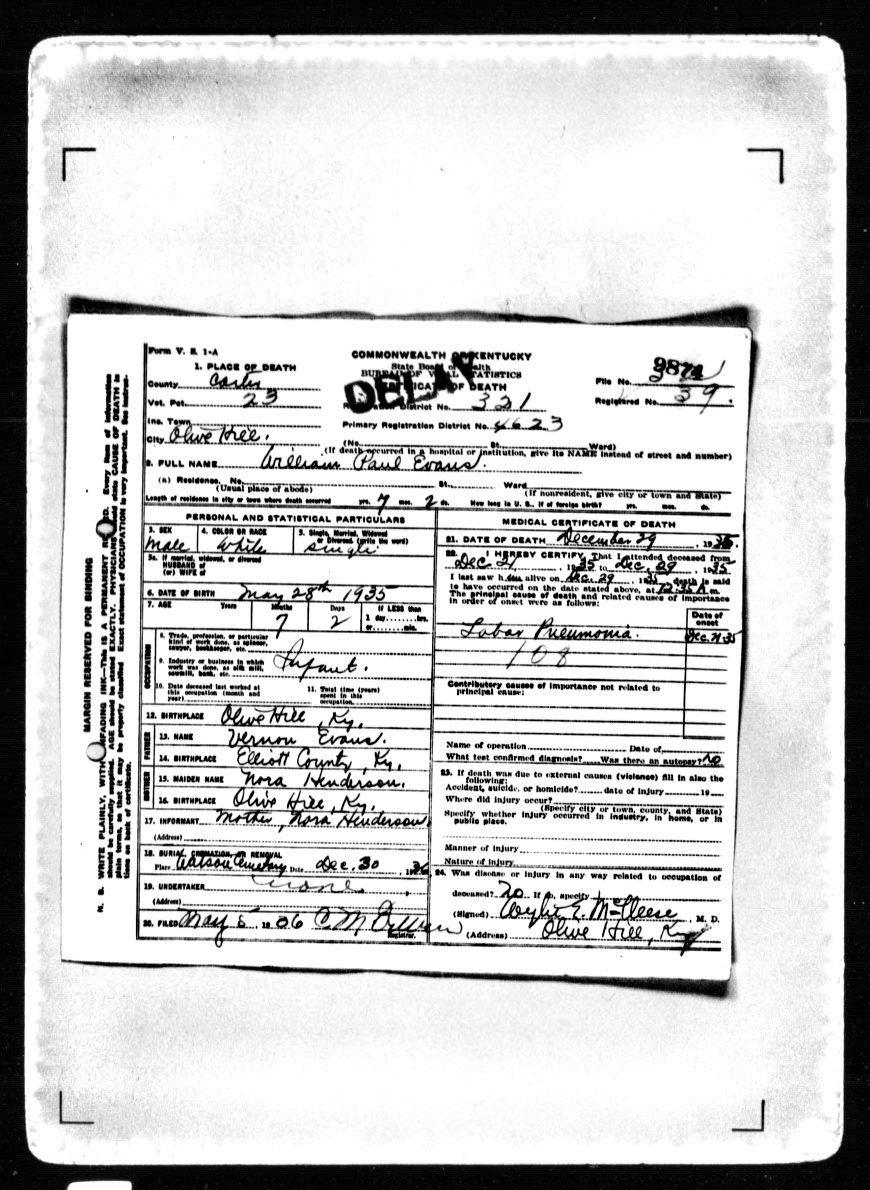 Form V. S. 1-A
COMMONWEALTH OF KENTUCKY
State Board of Health
BUREAU OF VITAL STATISTICS
CERTIFICATE OF DEATH
DELAY
1. PLACE OF DEATH
County Carter
File No.
Vot. Pct. 23
Registration District No. 321
Registered No. 39.
Inc. Town
Primary Registration District No. 4623
City Olive Hill. (No. St. Ward)
(If death occurred in a hospital or institution, give its NAME instead of street and number)
2. FULL NAME William Paul Evans.
(a) Residence, No. St., Ward
(Usual place of abode) (If nonresident, give city or town and State)
Length of residence in city or town where death occurred yrs. 7 mos. 2 ds. How long in U. S., if of foreign birth? yrs. mos. ds.
PERSONAL AND STATISTICAL PARTICULARS
3. SEX 4. COLOR OR RACE 5. Single, Married, Widowed or Divorced (write the word)
Male White Single
5a. If married, widowed, or divorced
HUSBAND of
(or) WIFE of
6. DATE OF BIRTH May 28th 1935
7. AGE Years Months Days If LESS than
7 2 1 day hrs.
or min.
OCCUPATION
8. Trade, profession, or particular kind of work done, as spinner, sawyer, bookkeeper, etc.
9. Industry or business in which work was done, as silk mill, sawmill, bank, etc.
Infant.
10. Date deceased last worked at this occupation (month and year)
11. Total time (years) spent in this occupation.
12. BIRTHPLACE Olive Hill, Ky.
FATHER
13. NAME Vernon Evans.
14. BIRTHPLACE Elliott County, Ky.
MOTHER
15. MAIDEN NAME Nora Henderson.
16. BIRTHPLACE Olive Hill, Ky.
17. INFORMANT Mother, Nora Henderson.
(Address)
18. BURIAL, CREMATION, OR REMOVAL
Place Watson Cemetery Date Dec. 30, 19
19. UNDERTAKER none
(Address)
20. FILED May 5, 19
Registrar.
MEDICAL CERTIFICATE OF DEATH
21. DATE OF DEATH December 29, 19
22. I HEREBY CERTIFY, That I attended deceased from
Dec. 21, 1935 to Dec. 29, 1935
I last saw him alive on Dec. 29, 1935, death is said
to have occurred on the date stated above, at 12:35 A m.
The principal cause of death and related causes of importance
in order of onset were as follows:
Date of onset
Lobar Pneumonia. Dec. 21-35
108
Contributory causes of importance not related to
principal cause:
Name of operation Date of
What test confirmed diagnosis? Was there an autopsy? No
23. If death was due to external causes (violence) fill in also the
following:
Accident, suicide, or homicide? date of injury 19
Where did injury occur?
(Specify city or town, county, and State)
Specify whether injury occurred in industry, in home, or in
public place.
Manner of injury
Nature of injury
24. Was disease or injury in any way related to occupation of
deceased? No If so, specify
(Signed) E. McGleese, M. D.
(Address) Olive Hill, Ky
MARGIN RESERVED FOR BINDING
N. B. WRITE PLAINLY, WITH UNFADING INK—This IS A PERMANENT RECORD. Every item of information
should be carefully supplied. AGE should be stated EXACTLY. PHYSICIANS should state CAUSE OF DEATH in
plain terms, so that it may be properly classified. Exact statement of OCCUPATION is very important. See instruc-
tions on back of certificate.